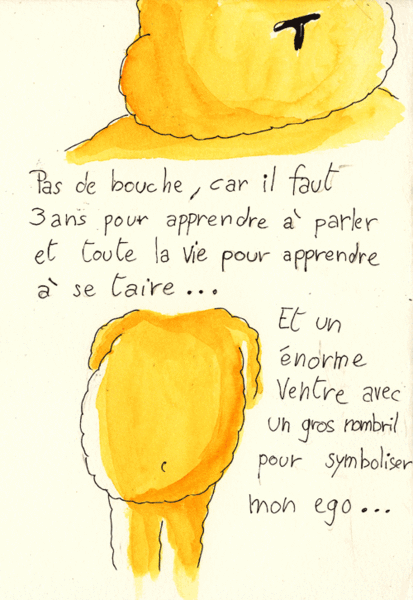 Pas de bouche, car il faut
3 ans pour apprendre à parler
et toute la vie pour apprendre
à se taire...
Et un
énorme
ventre avec
un gros nombril
pour symboliser
mon ego...